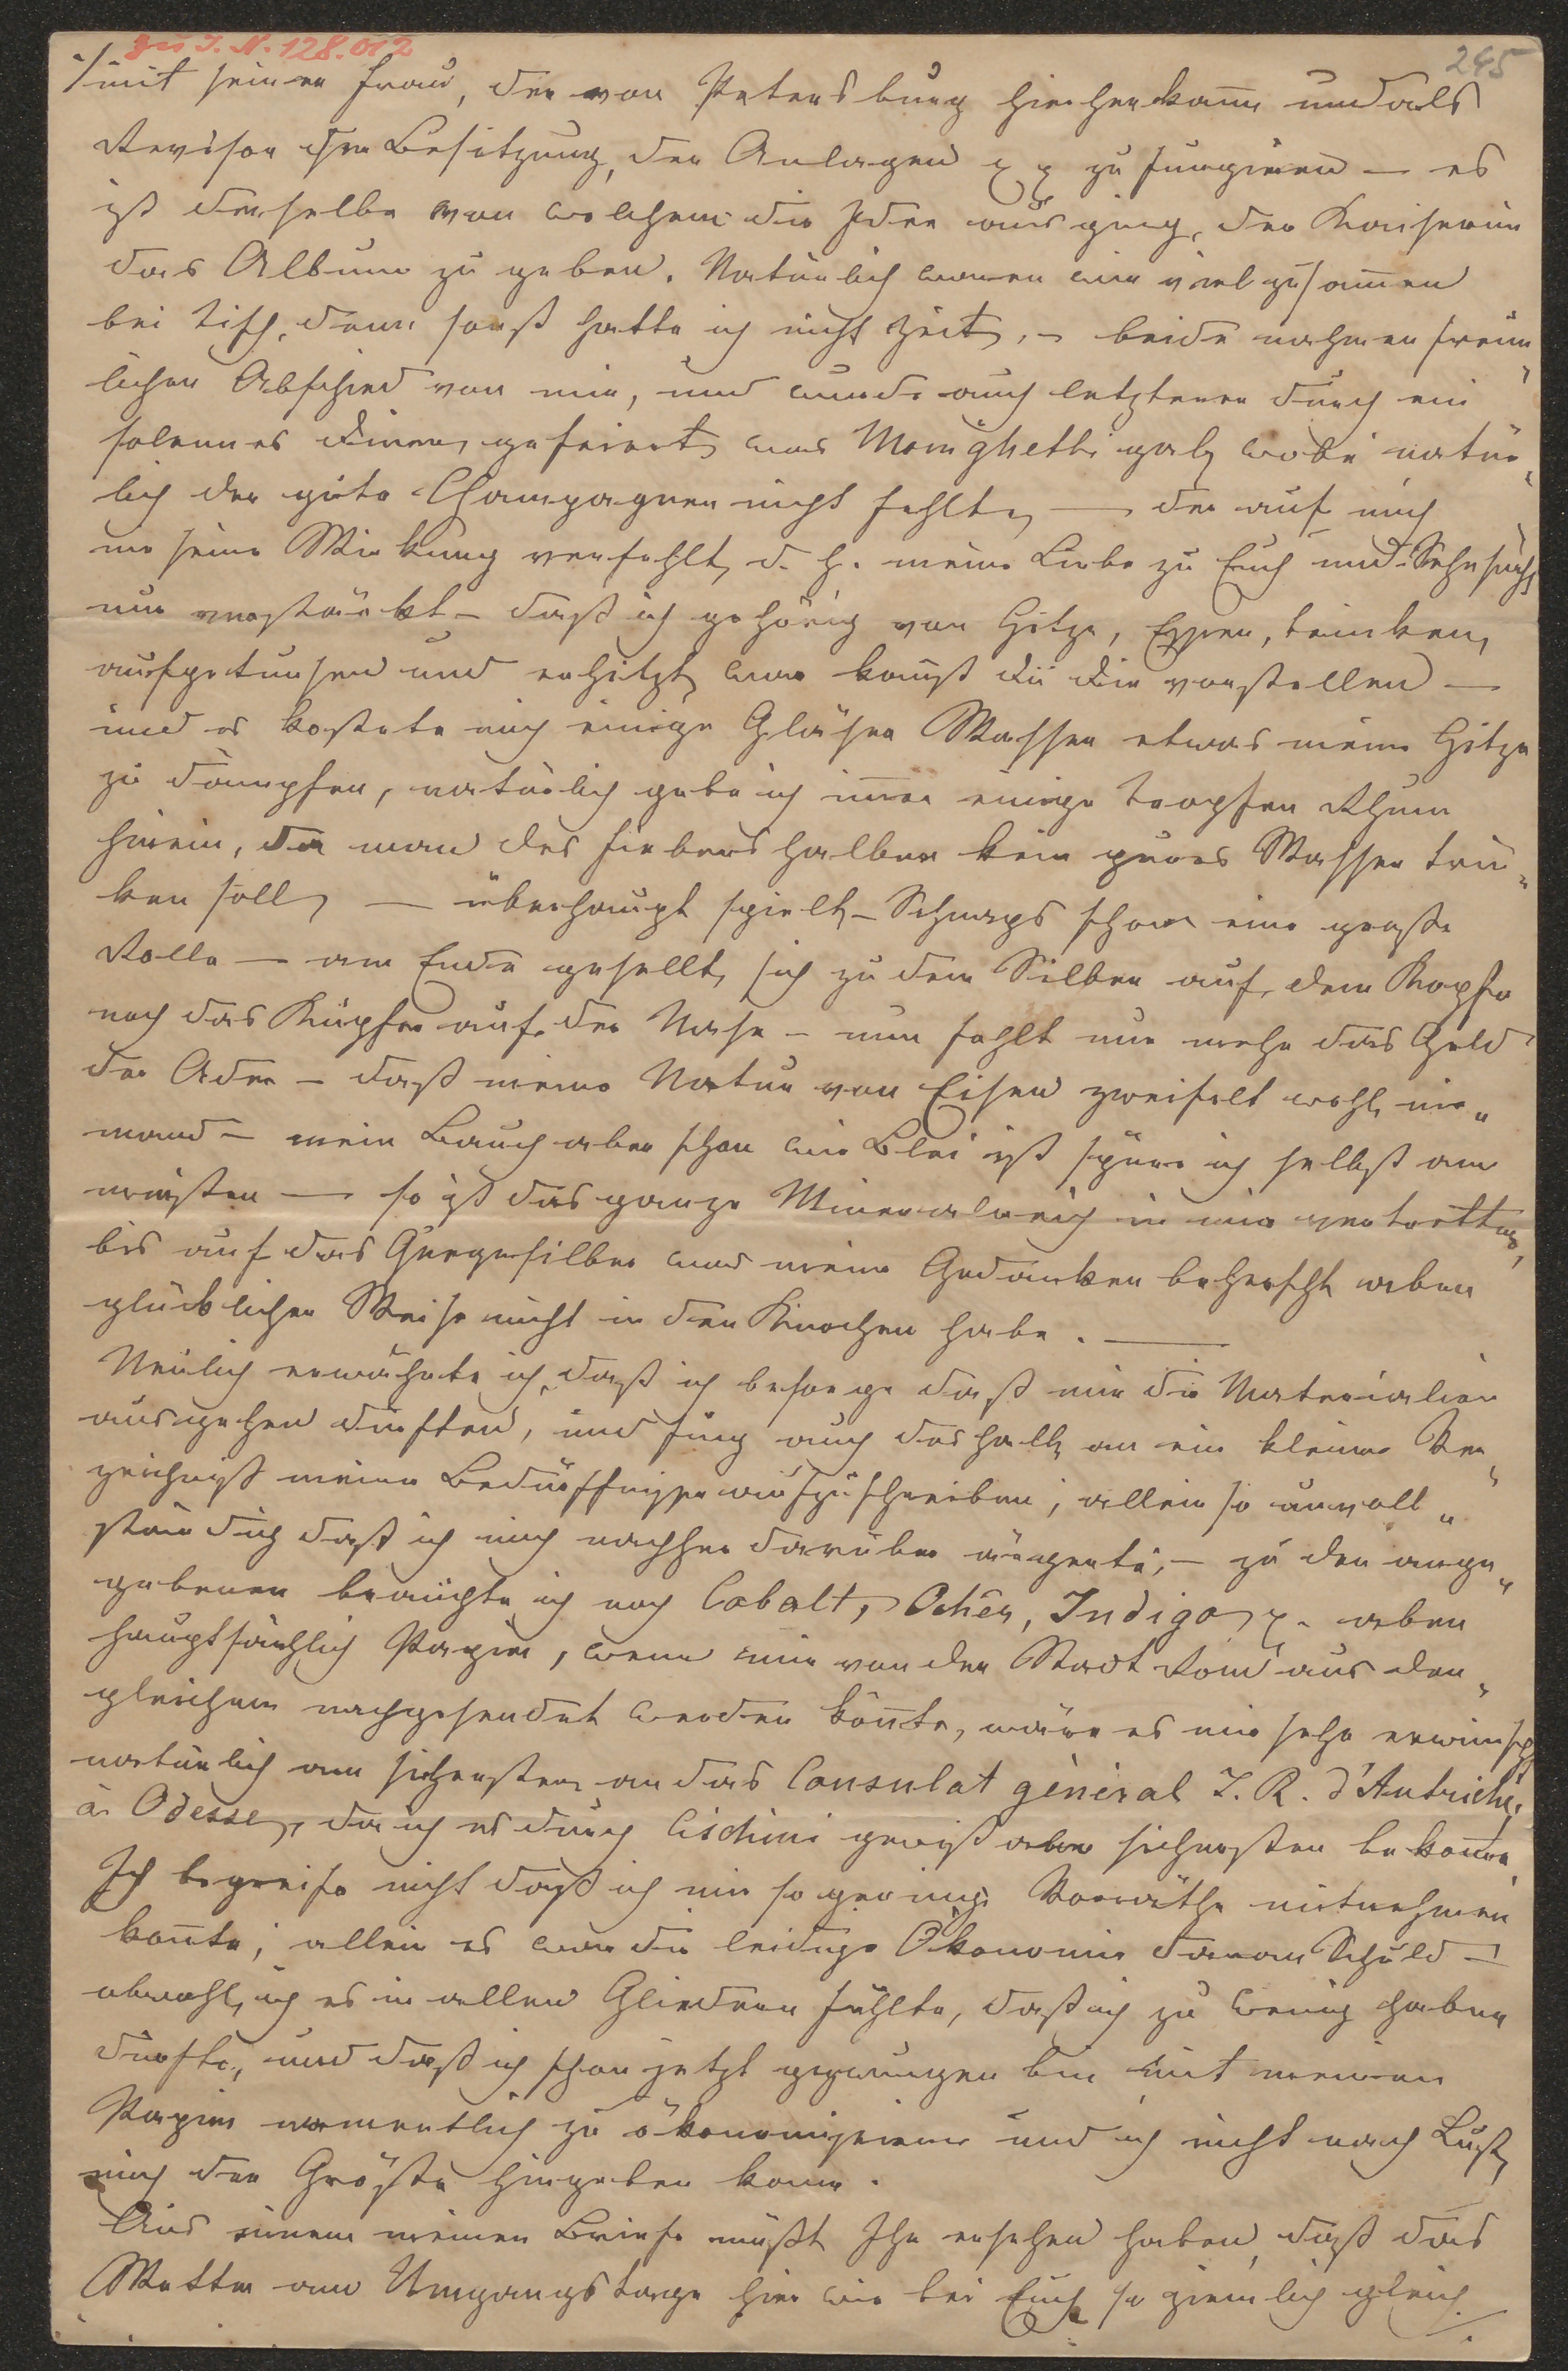 zu I. N. 128.012
245
/mit seiner Frau, der von Petersburg hierher kam̄ und als
Revisor der Besitzung, der Anlagen x x zu fungiren — es
ist derselbe von welchem die Idee ausging, der Kaiserin
das Album zu geben. Natürlich waren wir viel zusam̄en
bei Tisch, denn sonst hatte ich nicht Zeit, – beide nahmen freund„
lichen Abschied von mir, und wurde auch letzterer durch ein
solennes Diner gefeiert, was Monighetti gab, wobei natür„
lich der gute Champagner nicht fehlte, — der auf mich
nie seine Wirkung verfehlt, d. h. meine Liebe zu Euch und Sehnsucht
nur verstärkt – daß ich gehörig von Hitze, Essen, trinken,
aufgedunsen und erhitzt war kannst du dir vorstellen —
und es kostete mich einige Gläser Wasser etwas meine Hitze
zu dämpfen, natürlich gebe ich im̄er einige Tropfen Rhum
hinein, da man des Fiebers halber kein pures Wasser trin„
ken soll, — überhaupt spielt – Schnaps schon eine große
Rolle — am Ende gesellt sich zu dem Silber auf dem Kopfe
noch das Kupfer auf der Nase – nun fehlt nur mehr das Gold
der Ader – daß meine Natur von Eisen zweifelt wohl nie„
mand – mein Bauch aber schon wie Blei ist spüre ich selbst am
meisten — so ist das ganze Mineralreich in mir vertretten,
bis auf das Quecksilber was meine Gedanken beherscht aber
glücklicher Weise nicht in den Knochen habe. —
Neulich erwähnte ich, daß ich besorge daß mir die Materialien
ausgehen dürften, und fing auch deshalb an ein kleines Ver„
zeichniß meiner Bedürffnisse aufzuschreiben, allein so unvoll„
ständig daß ich mich nachher darüber ärgerte, – zu den ange„
gebenen brauchte ich noch Cobalt, Ocker, Indigo x. aber
hauptsächlich Papier, wenn mir von der Stadt Rom aus der„
gleichen nachgesendet werden kōnte, wäre es mir sehr erwünscht
natürlich am sichersten an das Consulat général I. R. d'Autriche,
à Odesse, da ich es durch Cischini gewiß am sichersten bekom̄e.
Ich begreife nicht daß ich mir so geringe Vorräthe mitnehmen
kon̄te, allein es war die leidige Ökonomie daran Schuld –
obwohl, ich es in allen Gliedern fühlte, daß ich zu wenig haben
dürfte, und daß ich schon jetzt gezwungen bin mit meinem
Papier namentlich zu ökonomisieren und ich nicht nach Lust,
mich der Größe hingeben kann.
Aus einem meiner Briefe müßt Ihr ersehen haben, daß das
Wetter am Umgangstage hier wie bei Euch so ziemlich gleich
/.